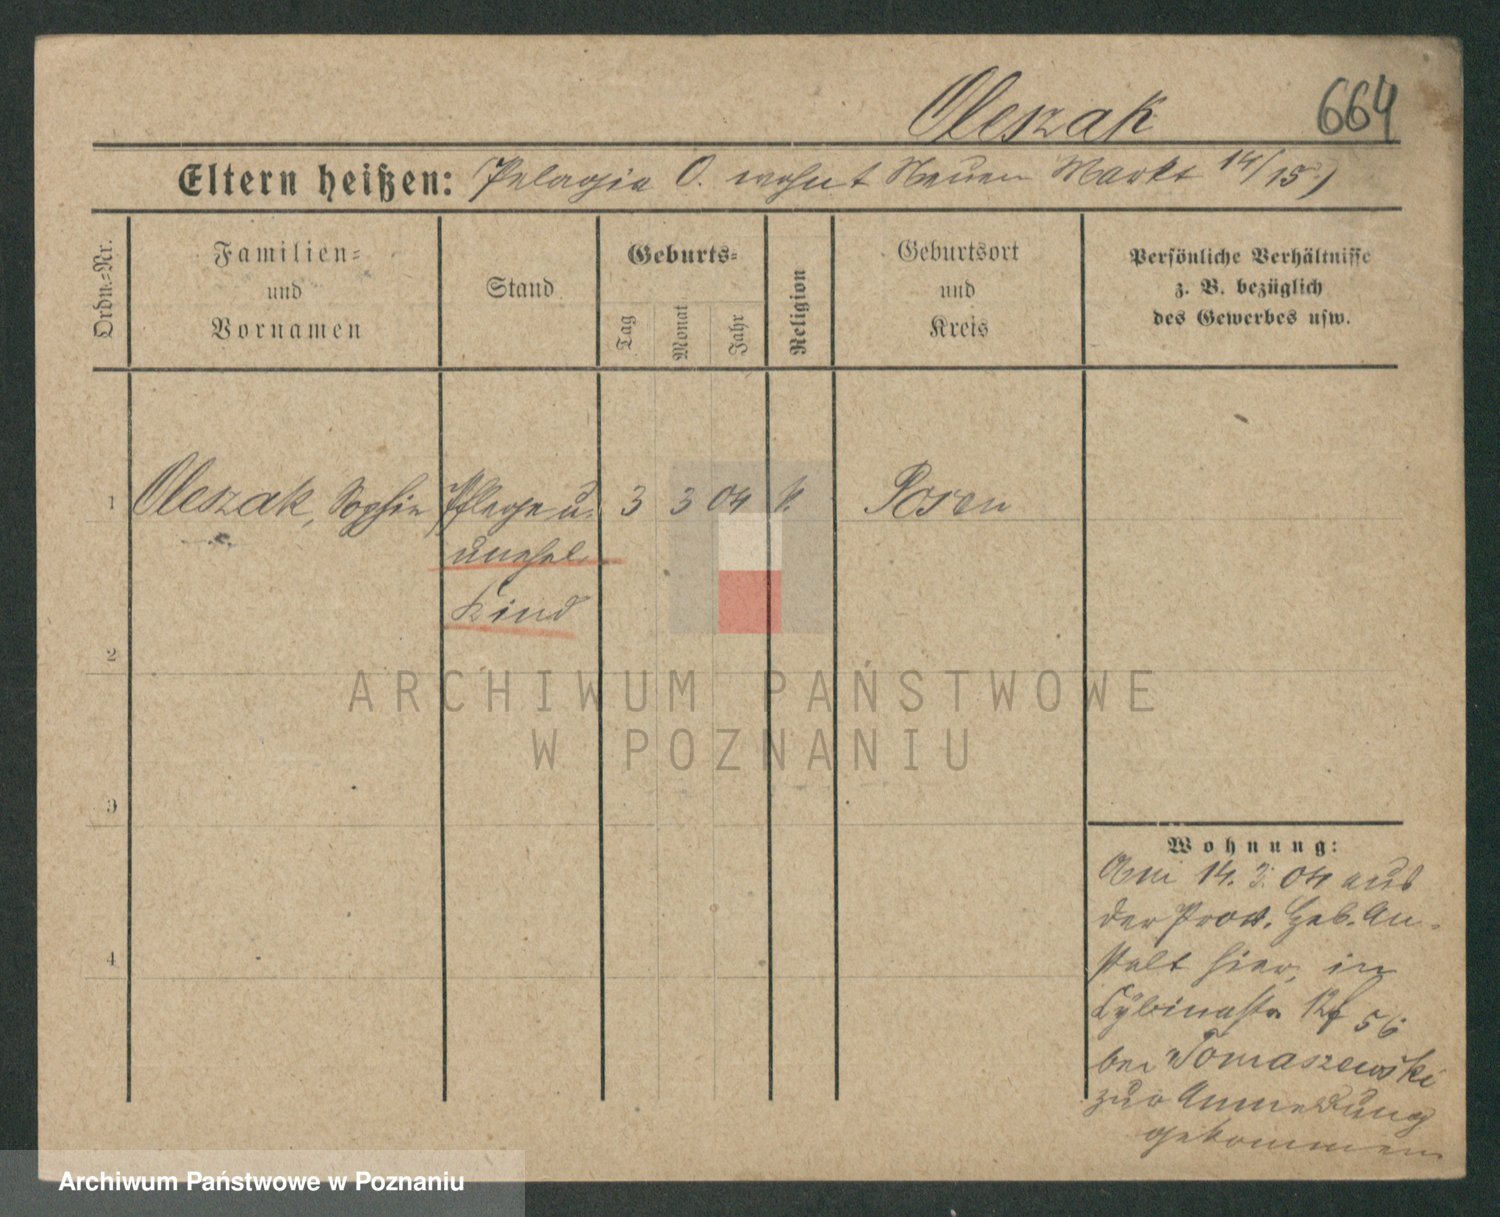 Oleszak 664
Eltern heißen: (Pelagia O. wohnt Neuen Markt 14/15.)
Ordn.-Nr.
Familien-
und
Vornamen
Stand
Geburts-
Tag
Monat
Jahr
Religion
Geburtsort
und
Kreis
Persönliche Verhältnisse
z. B. bezüglich
des Gewerbes usw.
1 Oleszak, Sophie Pflege u. 3 3 04 k. Posen
unehel.
Kind
2
3
4
ARCHIWUM PAŃSTWOWE
W POZNANIU
Wohnung:
Am 14. 3. 04 aus
der Prov. Heb. An-
stalt hier, in
Cybinastr. 56
bei Tomaszewski
zur Anmeldung
gekommen
Archiwum Państwowe w Poznaniu